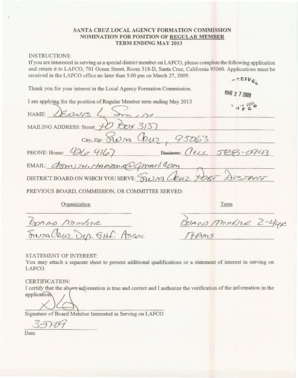 SANTA CRUZ LOCAL AGENCY FORMATION COMMISSION
NOMINATION FOR POSITION OF REGULAR MEMBER
TERM ENDING MAY 2013
INSTRUCTIONS:
If you are interested in serving as a special district member on LAFCO, please complete the following application
and return it to LAFCO, 701 Ocean Street, Room 318-D, Santa Cruz, California 95060. Applications must be
received in the LAFCO office no later than 5:00 pm on March 27, 2009.
MAR 27 2009
Thank you for your interest in the Local Agency Formation Commission.
I am applying for the position of Regular Member term ending May 2013
NAME: DENNIS L SMITH
MAILING ADDRESS: Street PO BOX 3157
City, Zip SANTA CRUZ, 95063
PHONE: Home: Business: CELL
EMAIL:
DISTRICT BOARD ON WHICH YOU SERVE: SANTA CRUZ PORT DISTRICT
PREVIOUS BOARD, COMMISSION, OR COMMITTEE SERVED:
Organization Term
BOARD MEMBER BOARD MEMBER 2-4yr
SANTA CRUZ Dep. Shf. Assoc TERMS
STATEMENT OF INTEREST:
You may attach a separate sheet to present additional qualifications or a statement of interest in serving on
LAFCO.
CERTIFICATION:
I certify that the above information is true and correct and I authorize the verification of the information in the
application.
Signature of Board Member Interested in Serving on LAFCO
Date